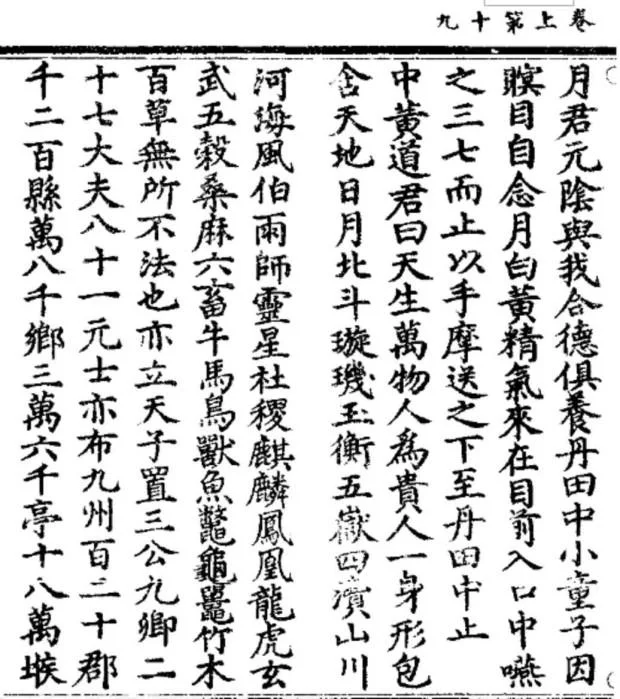 卷上第十九
月君元陰與我合德俱養丹田中小童子因
瞑目自念月白黃精氣來在目前入口中嚥
之三七而止以手摩送之下至丹田中止
中黃道君曰天生萬物人爲貴人一身形包
含天地日月北斗璇璣玉衡五嶽四瀆山川
河海風伯雨師靈星社稷麒麟鳳凰龍虎玄
武五穀桑麻六畜牛馬鳥獸魚鼈龜鼉竹木
百草無所不法也亦立天子置三公九卿二
十七大夫八十一元士亦布九州百二十郡
千二百縣萬八千鄉三萬六千亭十八萬堠